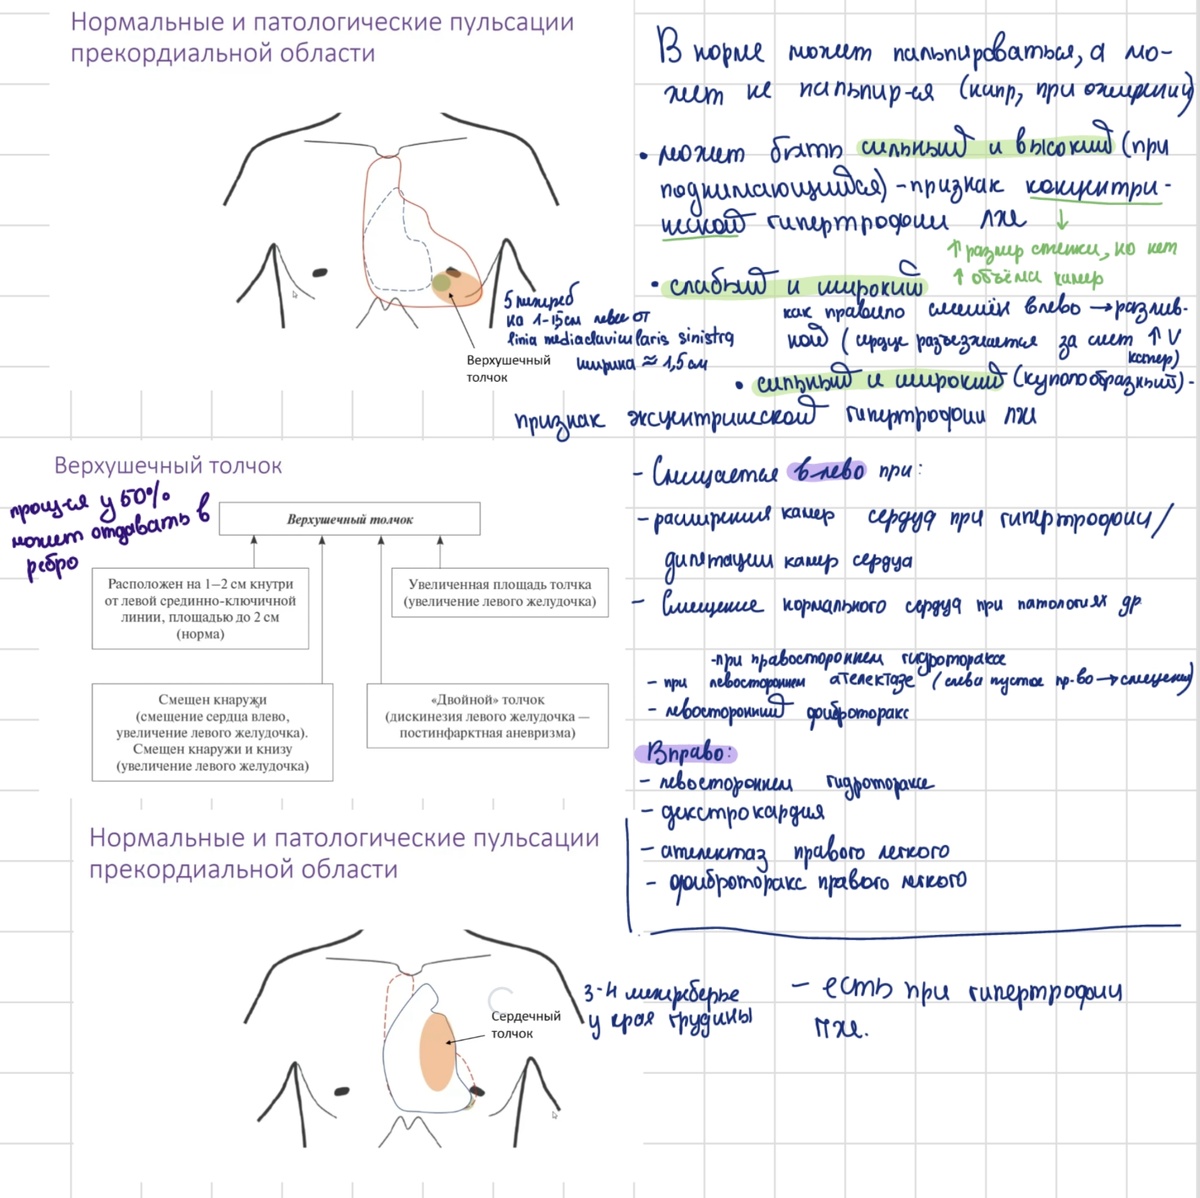 Нормальные и патологические пульсации
прекордиальной области
В норме может пальпироваться, а мо-
жет не пальпир-ся (напр, при ожирении)
• может быть сильный и высокий (при
поднимающийся) - признак концентри-
ческой гипертрофии ЛЖ
↓
↑ размер стенки, но нет
↑ объёма камер
• слабый и широкий
как правило смещён влево → разлив-
ной (сердце разъезжается за счет ↑ V
камер)
• сильный и широкий (куполообразный) -
признак эксцентрической гипертрофии ЛЖ
5 межреб
на 1-1,5см левее от
linia mediaclavicularis sinistra
ширина ≈ 1,5 см
Верхушечный
толчок
Верхушечный толчок
прощ-ся у 50%
может отдавать в
ребро
Верхушечный толчок
Расположен на 1–2 см кнутри
от левой срединно-ключичной
линии, площадью до 2 см
(норма)
Увеличенная площадь толчка
(увеличение левого желудочка)
Смещен кнаружи
(смещение сердца влево,
увеличение левого желудочка).
Смещен кнаружи и книзу
(увеличение левого желудочка)
«Двойной» толчок
(дискинезия левого желудочка —
постинфарктная аневризма)
- Смещается влево при:
- расширения камер сердца при гипертрофии/
дилятации камер сердца
- Смещение нормального сердца при патологиях др
- при правостороннем гидротораксе
- при левостороннем ателектазе (слева пустое пр-во → смещения)
- левосторонний фиброторакс
Вправо:
- левостороннем гидротораксе
- декстрокардия
- ателектаз правого легкого
- фиброторакс правого легкого
Нормальные и патологические пульсации
прекордиальной области
Сердечный
толчок
3-4 межреберье
у края грудины
- есть при гипертрофии
ПЖ.